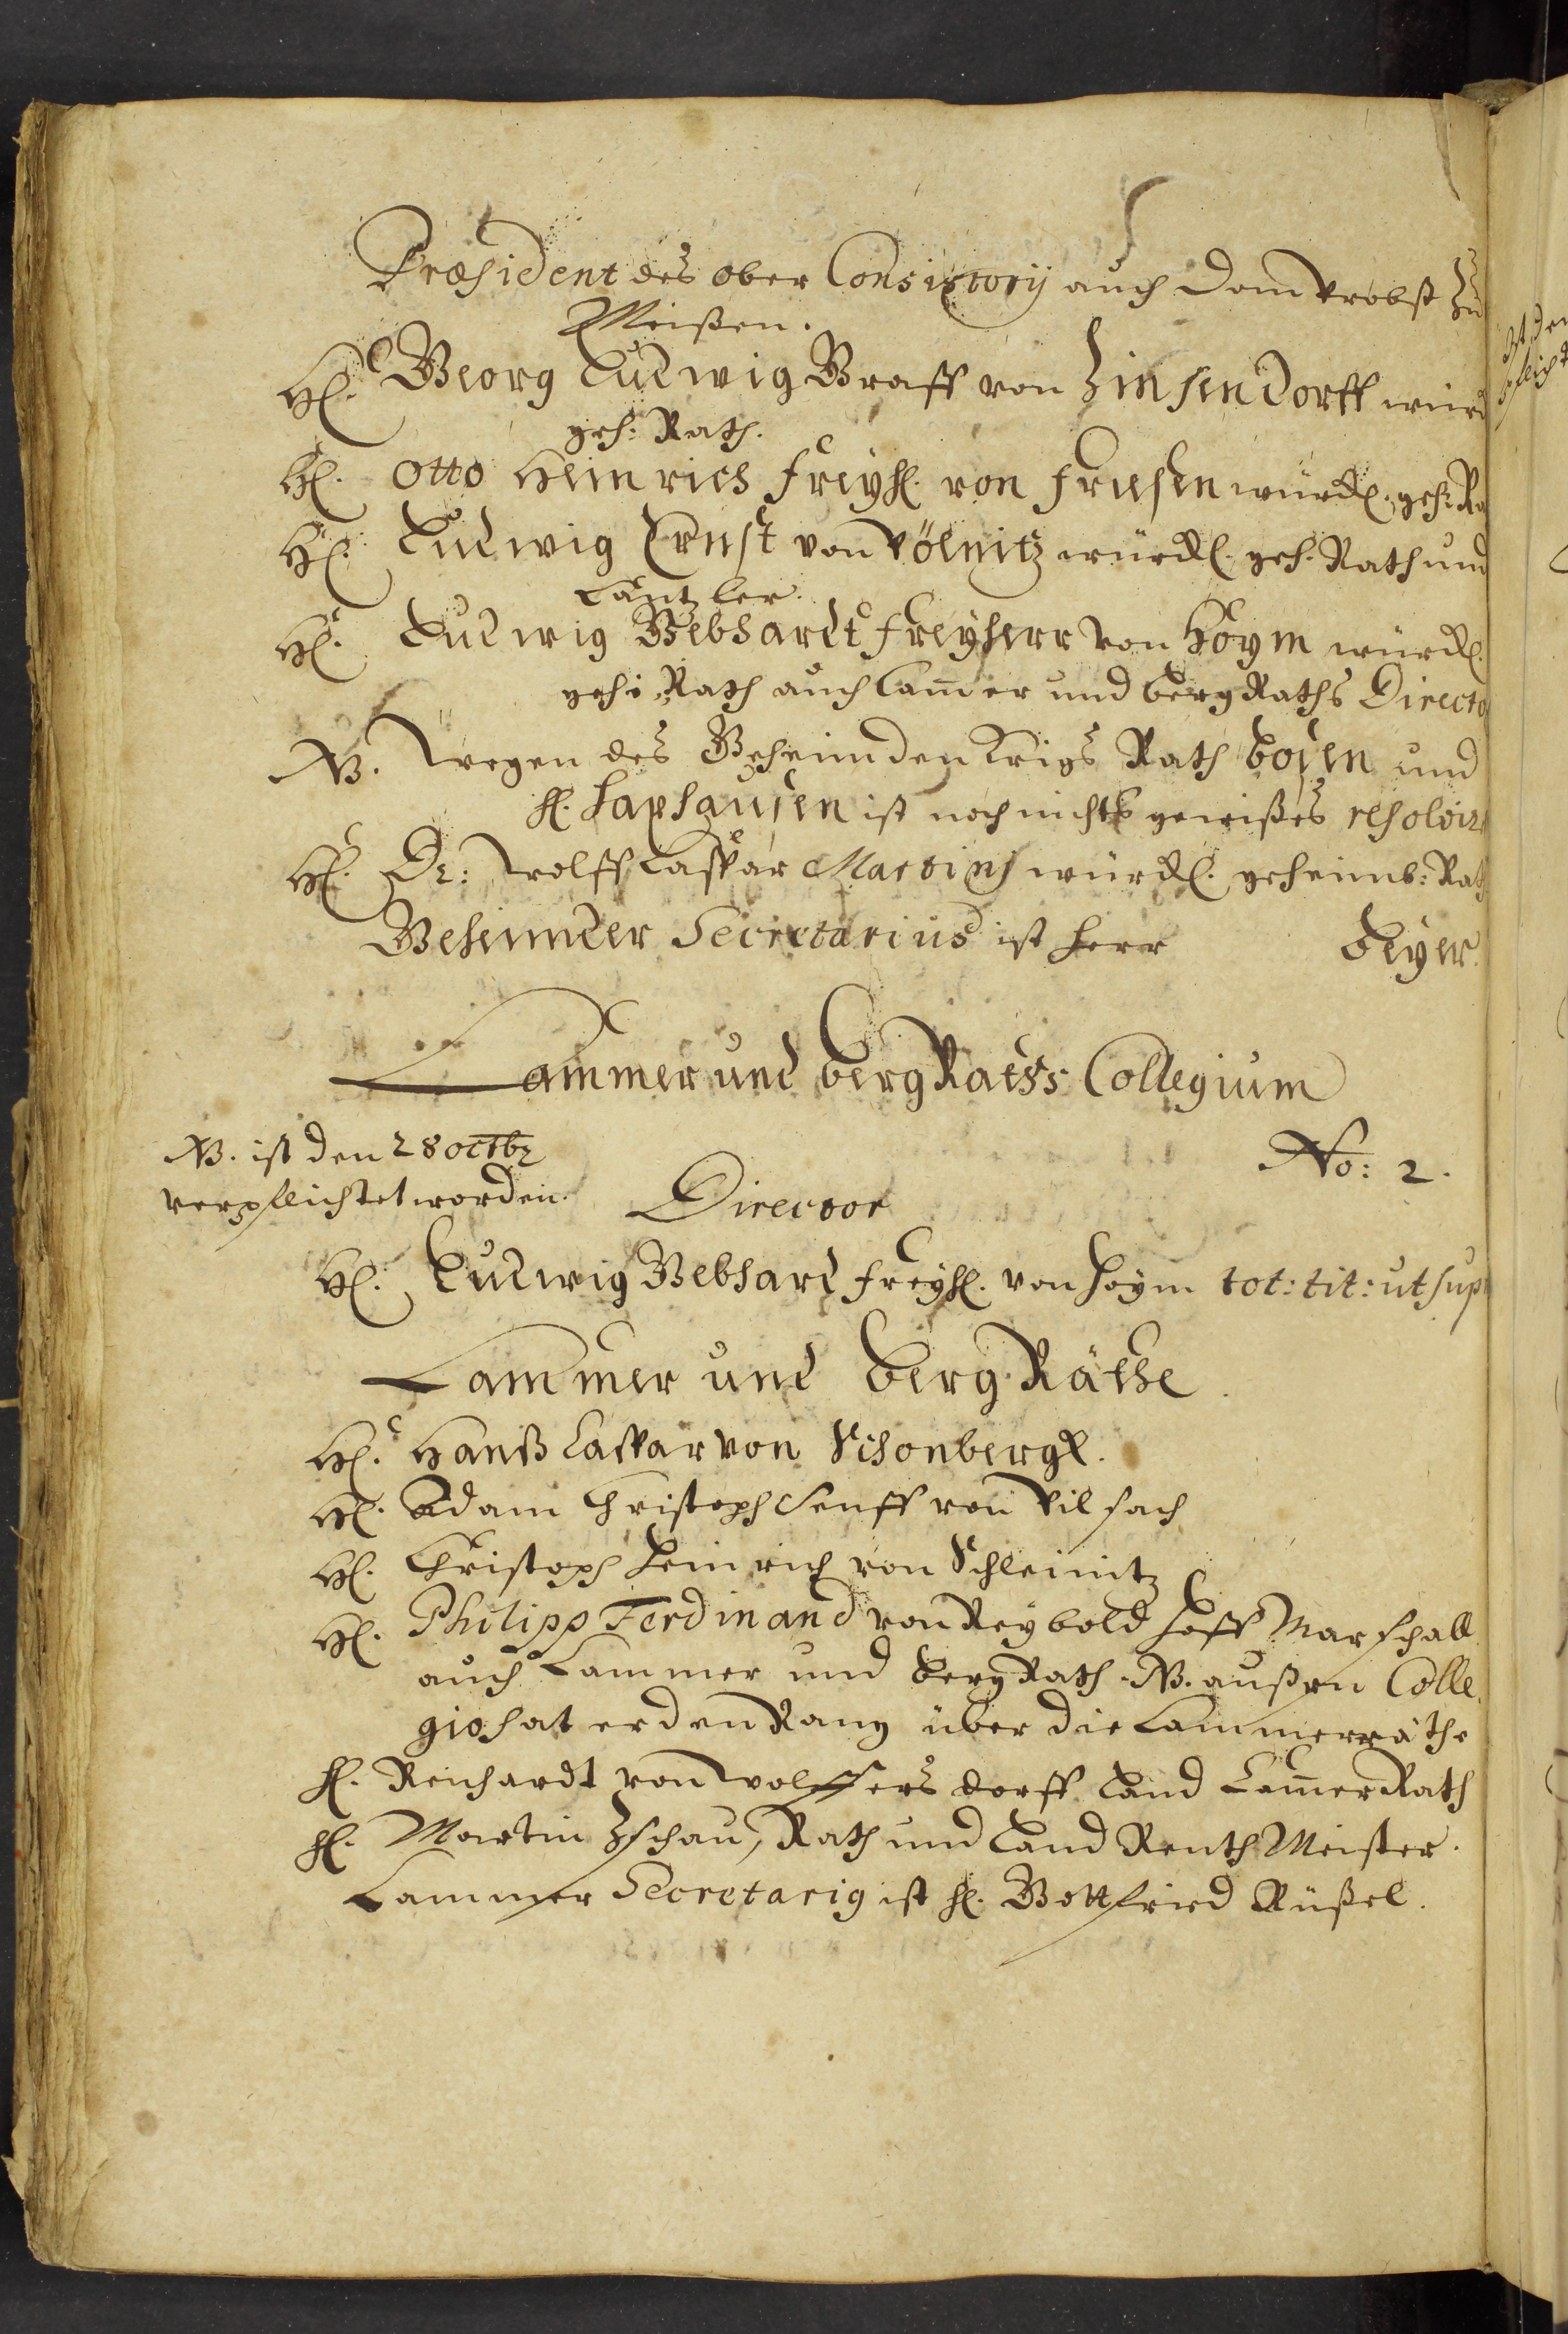 Præsident des ober Consistorij auch Dom Probst zu
Meißen.
H. Georg Ludwig Graff von Zinsendorff würd
geh: Rath.
H. Otto Heinrich Freyh. von Friesen würckl. geh. Ra
H. Ludwig Ernst von Pölnitz würckl. geh. Rath und
Cantzler.
H. Ludwig Gebhardt Freyherr von Hoym würckl.
geh: Rath auch Cam̄er und Berg Raths Directo
NB. Wegen des Geheimden Krigs Rath Bosen und
H. Haxhausen ist noch nichts gewißes resolvir
H. Dr: Wolff Caspar Martini würckl. geheimb: Rath
Geheimder Secretarius ist Herr Beyer.
Cammer und Berg Raths Collegium
NB. ist den 28 octbr
verpflichtet worden.
No: 2.
Director
H. Ludwig Gebhard Freyh. von Hoym tot: tit: ut sup
Cammer und Berg Räthe.
H. Hanß Caspar von Schonbergk.
H. Adam Christoph Senff von Pilsach
H. Christoph Heinrich von Schleinitz
H. Philipp Ferdinand von Reybold Hoff Marschall
auch Cammer und Berg Rath. NB. außen Colle
gio hat er den Rang über die Cammerräthe
H. Reichardt von Wolffersdorff Land Cam̄er Rath
H. Martin Zschau, Rath und Land Renth Meister.
Cammer Secretarig ist H. Gottfried Rüßel.